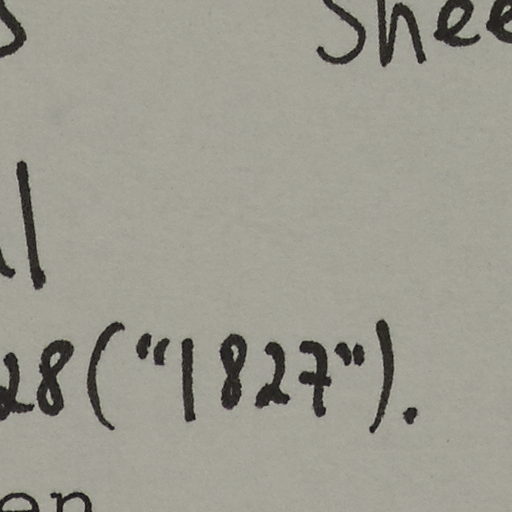 s Shee
l
28 ("1827").
en